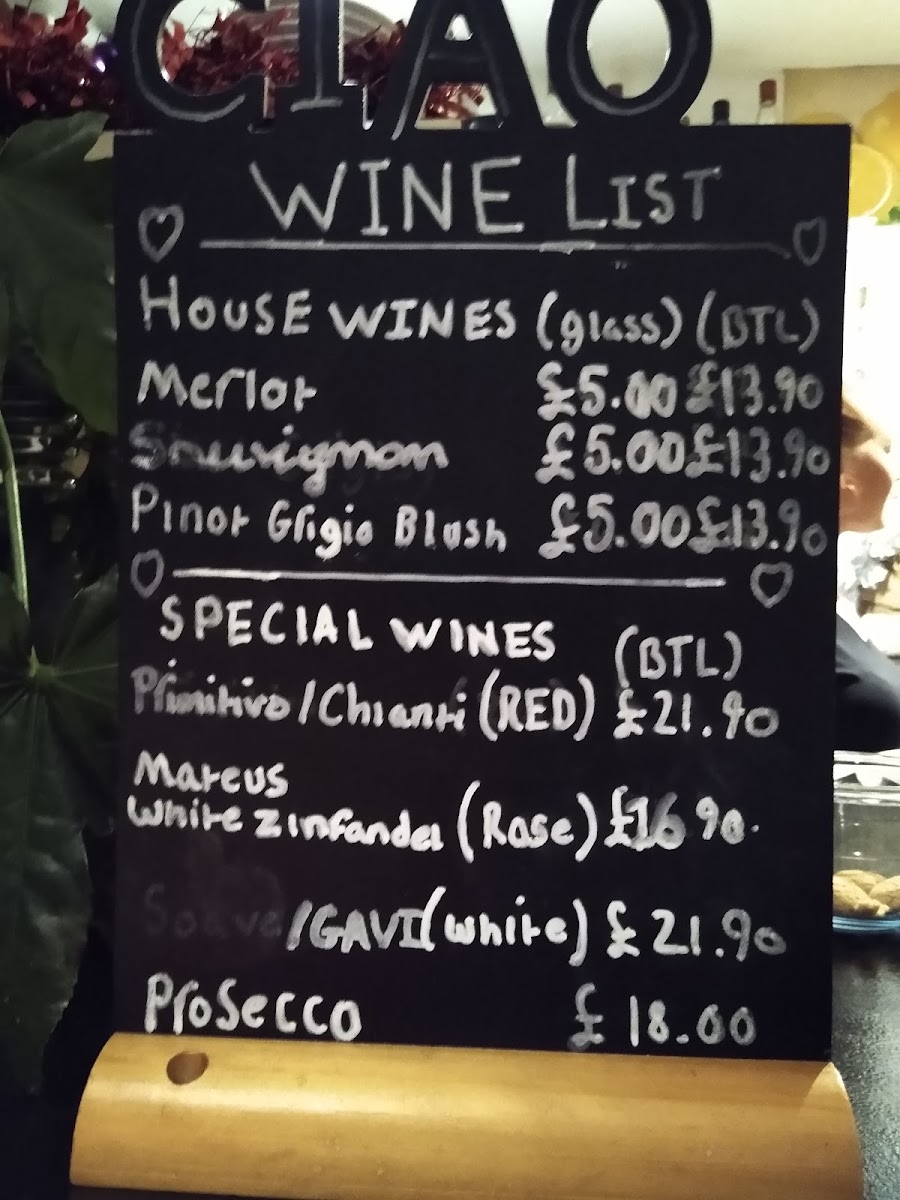 CIAO
WINE LIST
HOUSE WINES (glass) (BTL)
Merlot £5.00 £13.90
Sauvignon £5.00 £13.90
Pinot Grigio Blush £5.00 £13.90
SPECIAL WINES (BTL)
Primitivo/Chianti (RED) £21.90
Mateus
White Zinfandel (Rose) £16 90.
Soave/GAVI (white) £21.90
Prosecco £18.00